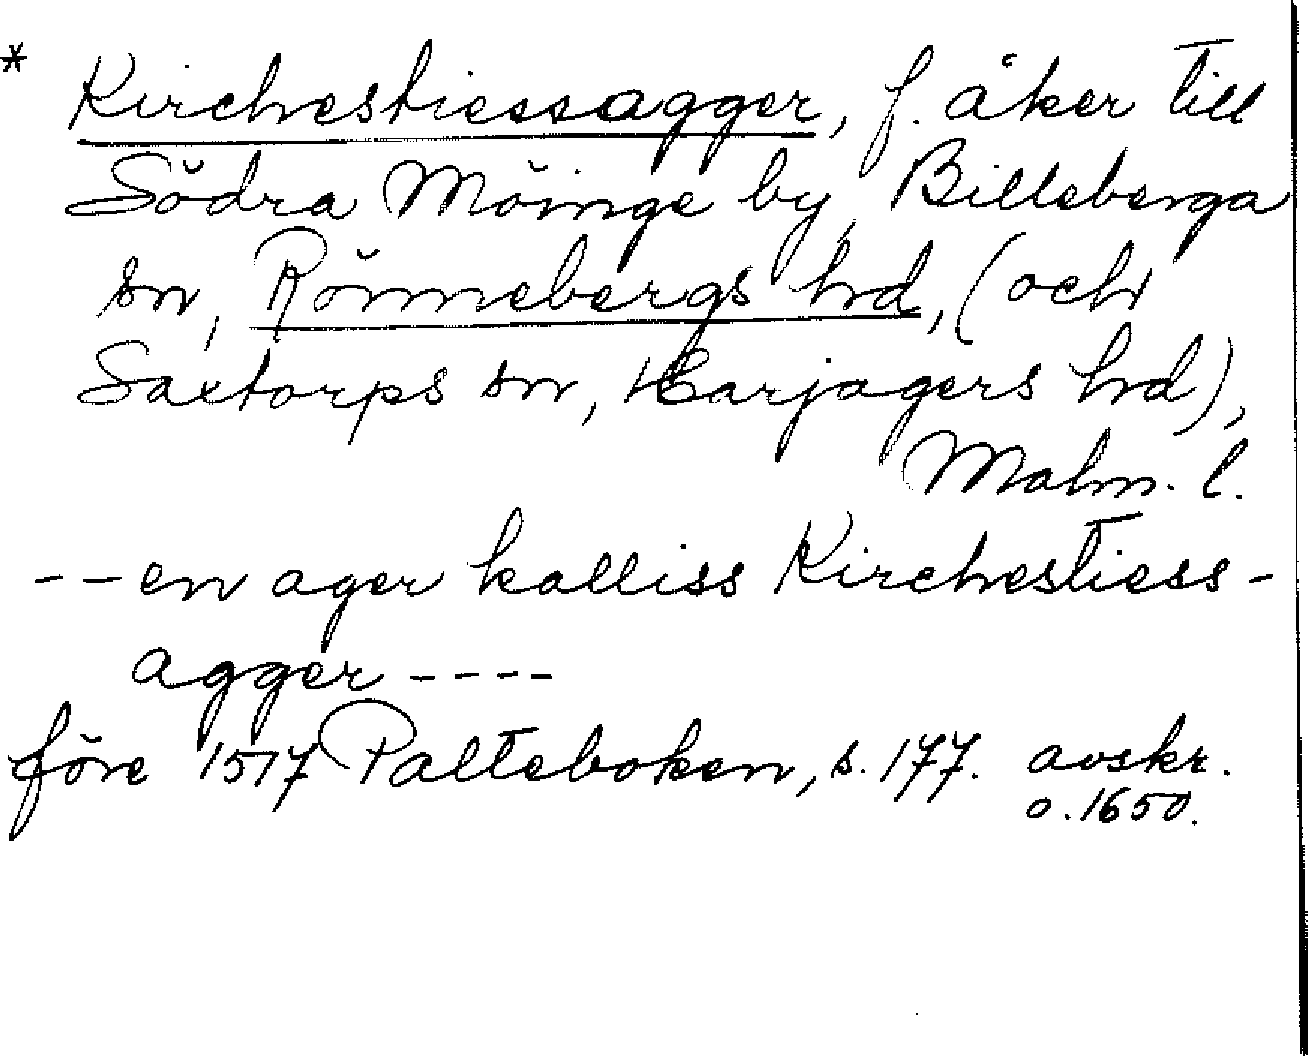 * Kirchestiessagger, f. åker till
Södra Möinge by, Billeberga
sn, Rönnebergs hd, (och
Saxtorps sn, Harjagers hd),
Malm. l.
--en ager kalliss Kirchestiess-
agger----
före 1517 Palteboken, s. 177. avskr.
o. 1650.